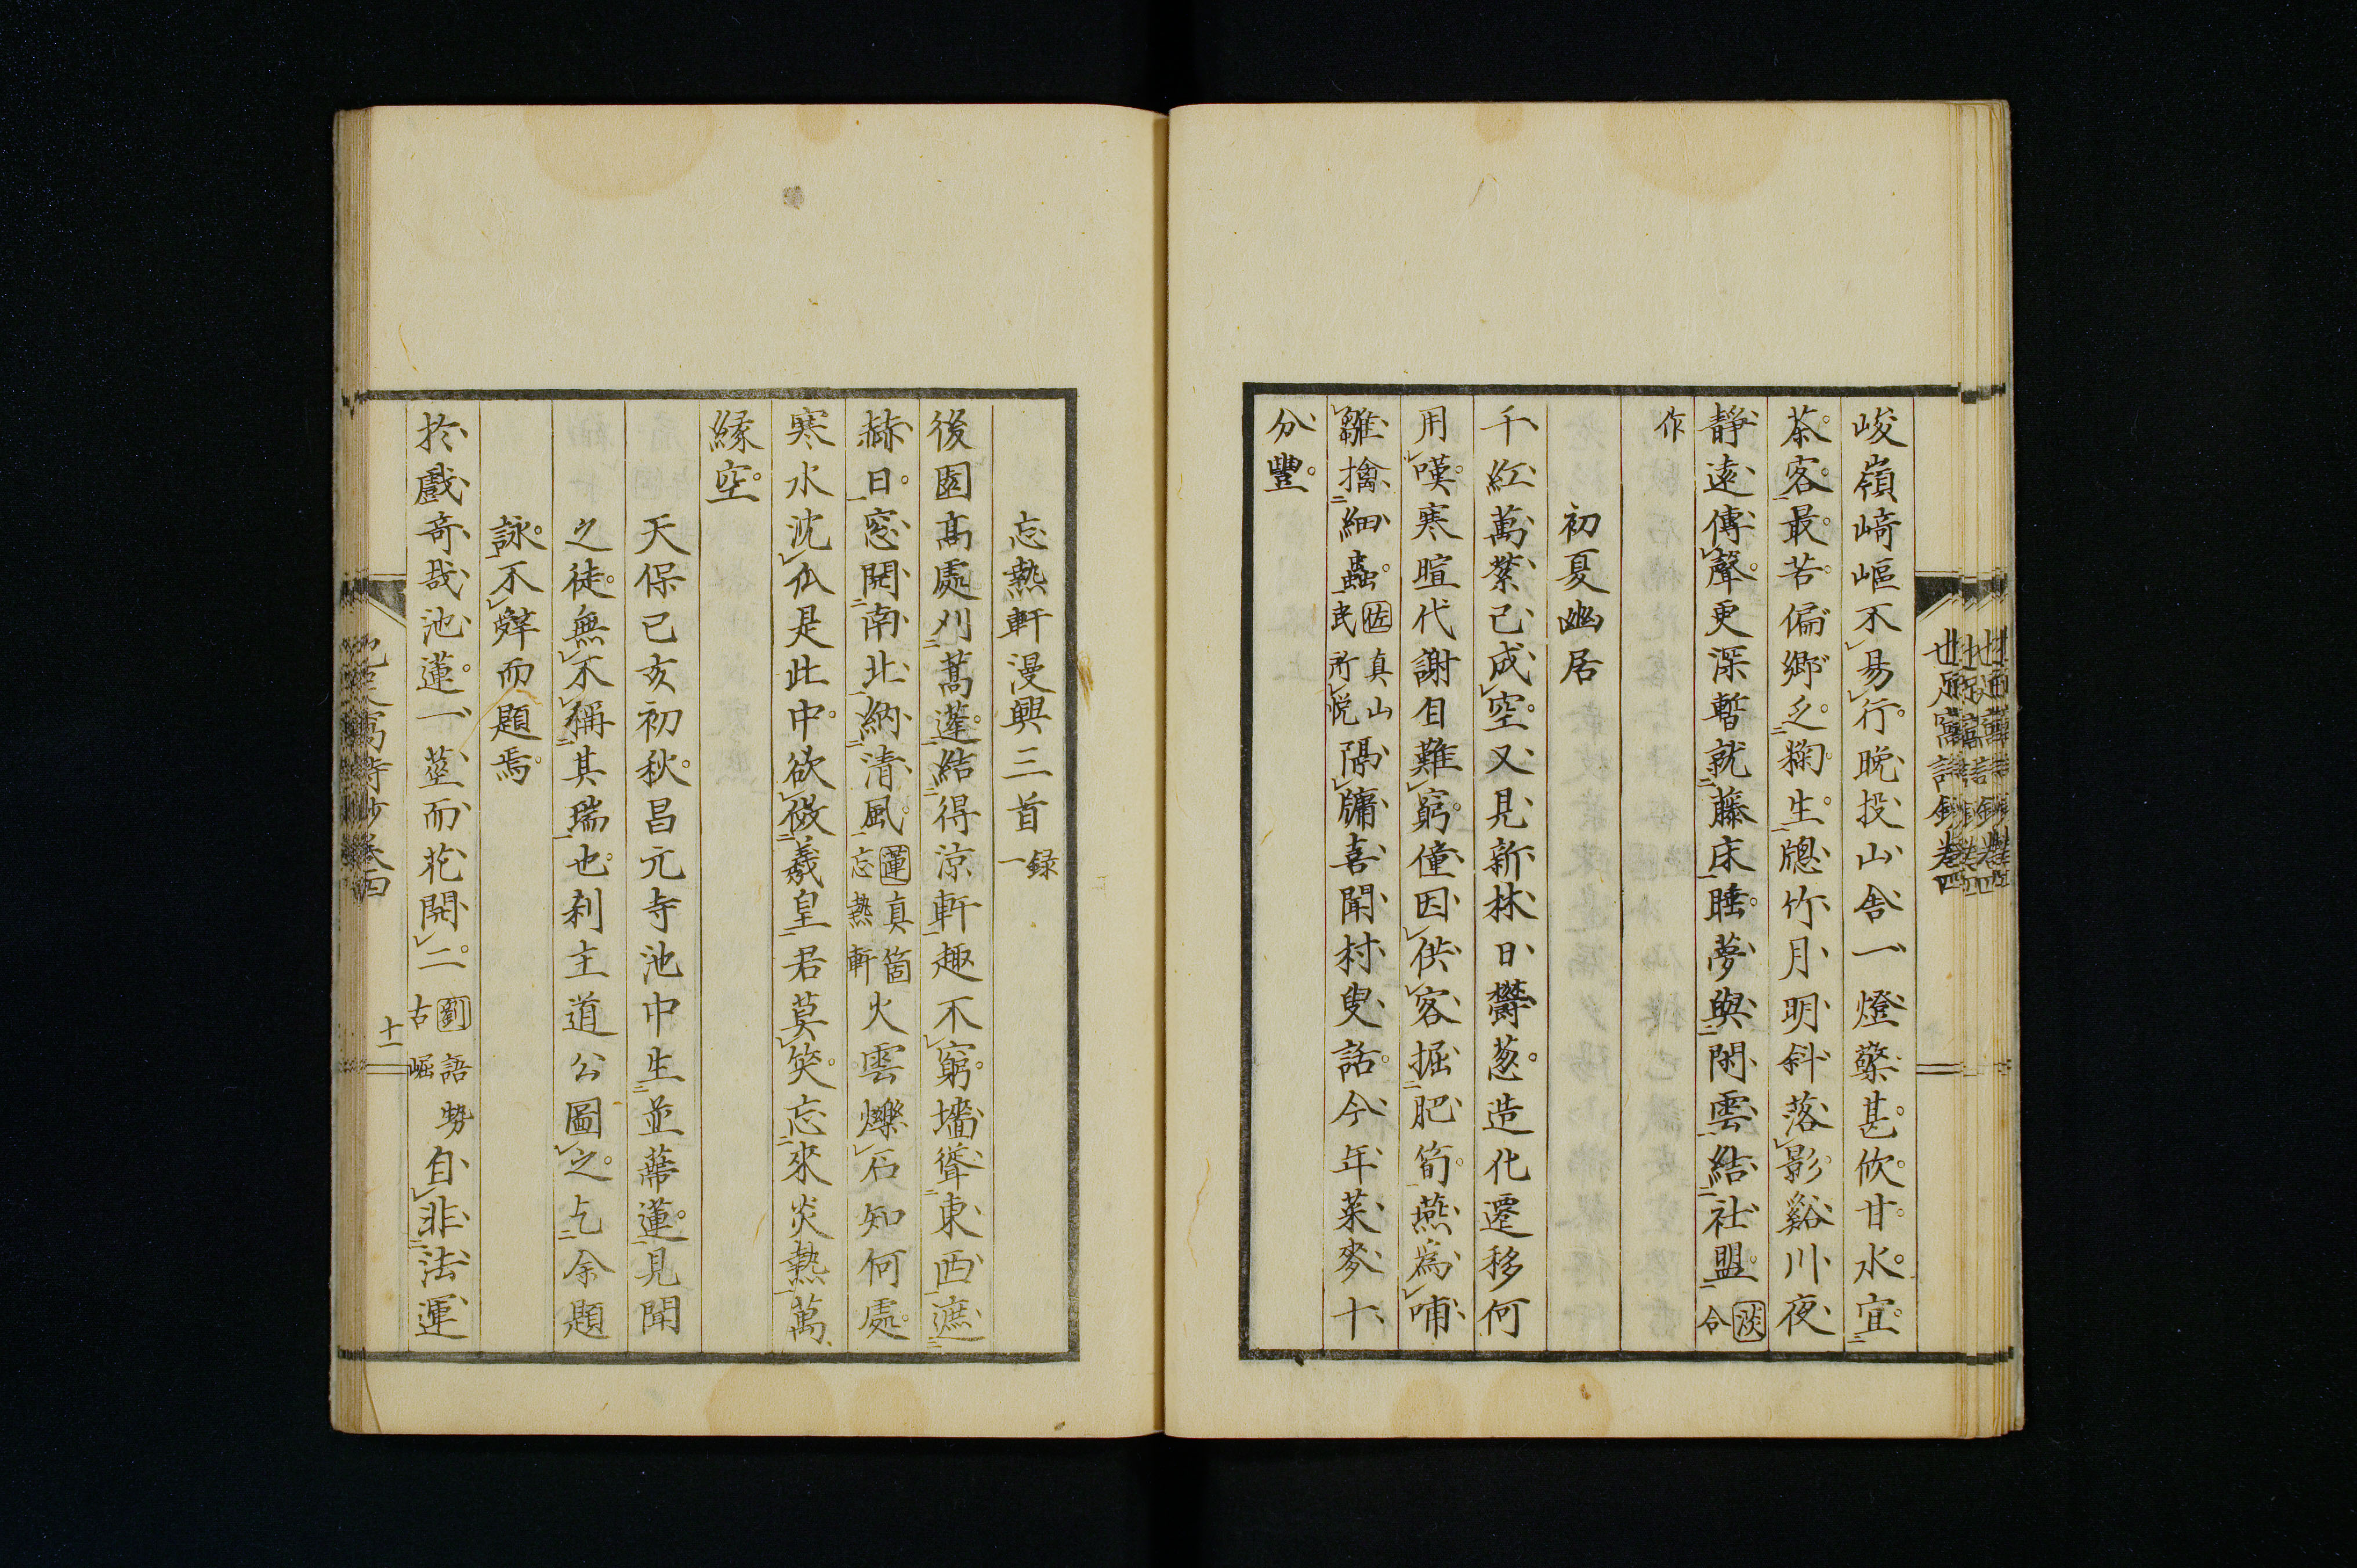 峻嶺崎嶇不易行。晚投山舍一燈檠。甚佽甘水。宜
茶。客。最。苦。偏鄉乏。麹。生。牕竹月明斜落影。谿川夜
靜遠傳聲。更深暫就藤床睡。夢與閑雲結社盟。淡合
作
初夏幽居
千紅萬縈已成空。又見新林日欝葱。造化遷移何
用嘆。寒暄代謝自難窮。僮因供客掘肥筍。燕爲哺
雛擒細蟲。佐民真山所悅隔牗喜聞村叟話。今年菜麥十
分豐。
忘熱軒漫興三首錄一
後園高處刈蒿蓬。結得涼軒趣不窮。墻聳東西遮
赫日。窓開南北納清風。蓮真箇忘熱軒火雲爍石知何處。
寒水沈仏是此中。欲傚羲皇君莫笑。忘來炎熱萬
緣空。
天保已亥初秋。昌元寺池中生並蔕蓮。見聞
之徒。無不稱其瑞也。刹主道公圖之。乞余題
詠。不辭而題焉。
於戲奇哉池蓮。一莖而花開二。劉語勢古崛自非法運
十一